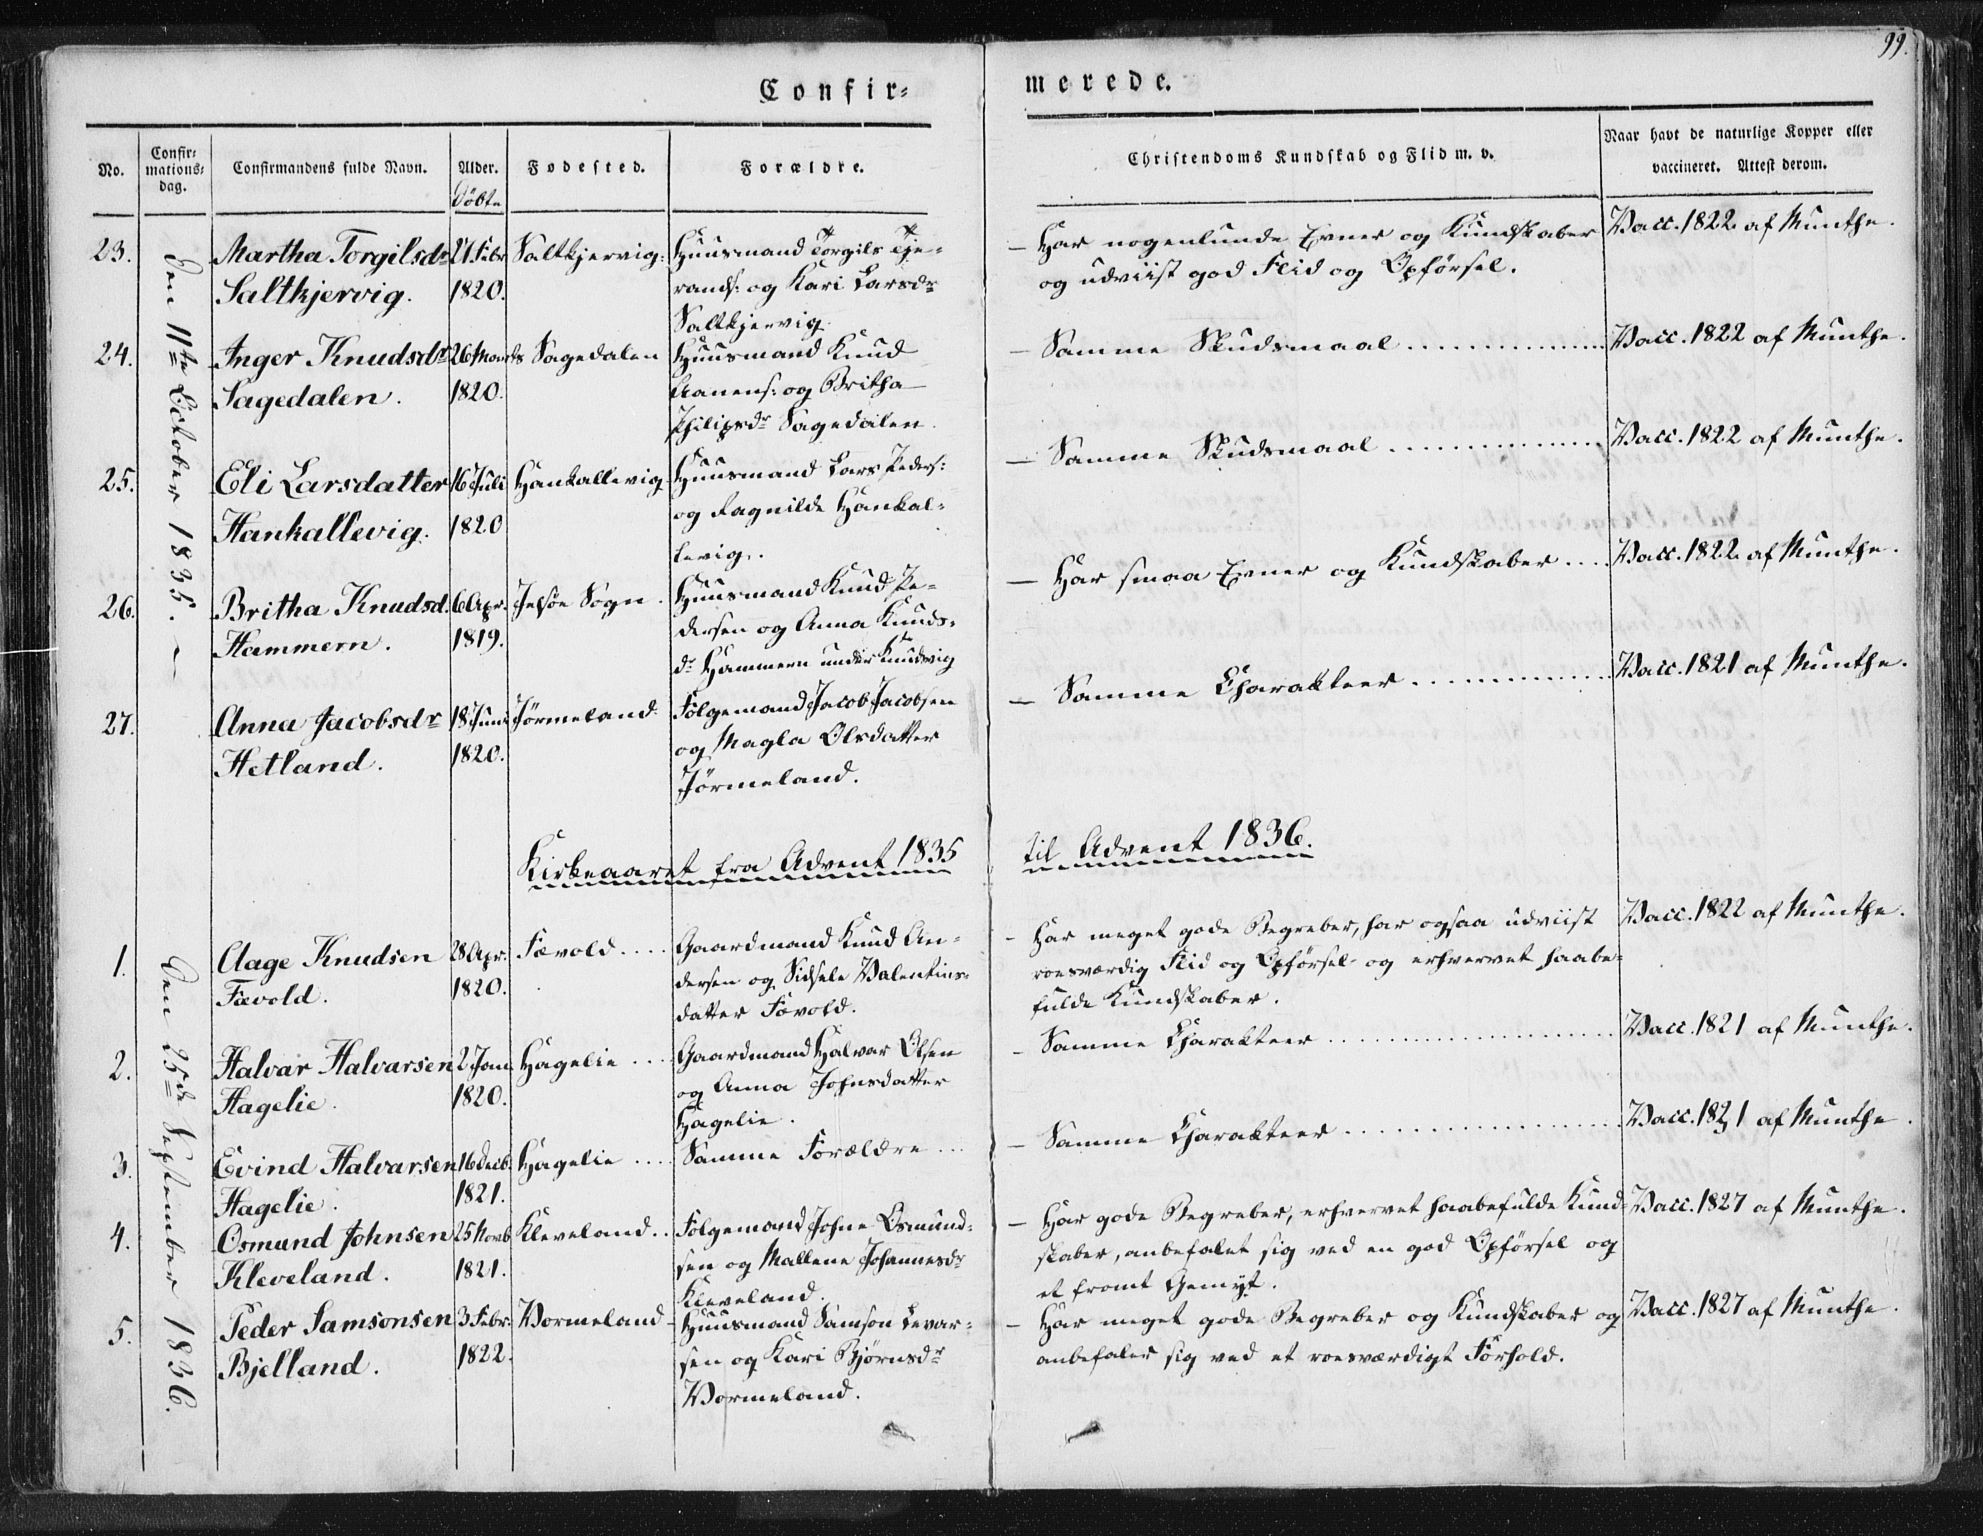 99.
Confir=
merede.
No.
Confir=
mations=
dag.
Confirmandens fulde Navn.
Alder.
Döbte
Fødested.
Forældre.
Christendoms Kundskab og Flid m. v.
Naar havt de naturlige Kopper eller
vaccineret. Attest derom.
den 11te October 1835.
23.
Martha Torgilsdr
Saltkjervig.
21 Febr
1820.
Saltkjervig.
Huusmand Torgils Tje-
rands: og Kari Larsdr
Saltkjervig.
— Har nogenlunde Evner og Kundskaber
og udviist god Flid og Opförsel.
Vacc. 1822 af Munthe.
24.
Inger Knudsdr
Sagedalen.
26 Marts
1820.
Sagedalen
Huusmand Knud
Aanens: og Britha
Philipsdr Sagedalen.
— Samme Skudsmaal ...............
Vacc. 1822 af Munthe.
25.
Eli Larsdatter
Hankallevig.
16 Juli
1820
Hankallevig
Huusmand Lars Peders:
og Ragnilde Hankal=
levig.
— Samme Skudsmaal ...............
Vacc. 1822 af Munthe.
26.
Britha Knudsd.
Hammern.
6 Apr.
1819.
Jelsöe Sogn.
Huusmand Knud Pe-
dersen og Anna Knuds=
dr Hammern under Knudvig
— Har smaa Evner og Kundskaber ....
Vacc. 1822 af Munthe.
27.
Anna Jacobsdr
Hetland.
18 Juni
1820.
Jörmeland
Fölgemand Jacob Jacobsen
og Magla Olsdatter
Jörmeland.
— Samme Charakteer ..............
Vacc. 1821 af Munthe.
Kirkeaaret fra Advent 1835
til Advent 1836.
Den 25de September 1836.
1.
Aage Knudsen
Fævold.
28 Apr.
1820.
Fævold ....
Gaardmand Knud An-
dersen og Sidsele Valentins=
datter Fævold.
- Har meget gode Begreber, har ogsaa udviist
roesværdig Flid og Opförsel og erhvervet haabe=
fulde Kundskaber.
Vacc. 1822 af Munthe.
2.
Halvar Halvarsen
Hagelie.
2 Jan.
1820.
Hagelie ....
Gaardmand Halvar Olsen
og Anna Johnsdatter
Hagelie.
- Samme Charakteer ....................
Vacc. 1821 af Munthe.
3.
Eivind Halvarsen
Hagelie.
16 Decb.
1821.
Hagelie ....
Samme Forældre ...
- Samme Charakteer ....................
Vacc. 1821 af Munthe.
4.
Osmund Johnsen
Kleveland.
25 Novb
1821.
Kleveland ..
Fölgemand Johne Osmund=
sen og Mallene Johannesdr
Kleveland.
— Har gode Begreber, erhvervet haabefulde Kund=
skaber, anbefalet sig ved en god Opförsel og
et fromt Gemyt.
Vacc. 1827 af Munthe.
5.
Peder Samsonsen
Bjelland.
3 Febr.
1822.
Vormeland
Huusmand Samson Levar=
sen og Kari Björnsdr
Vormeland.
— Har meget gode Begreber og Kundskaber og
anbefaler sig ved et roesværdigt Forhold.
Vacc. 1827 af Munthe.